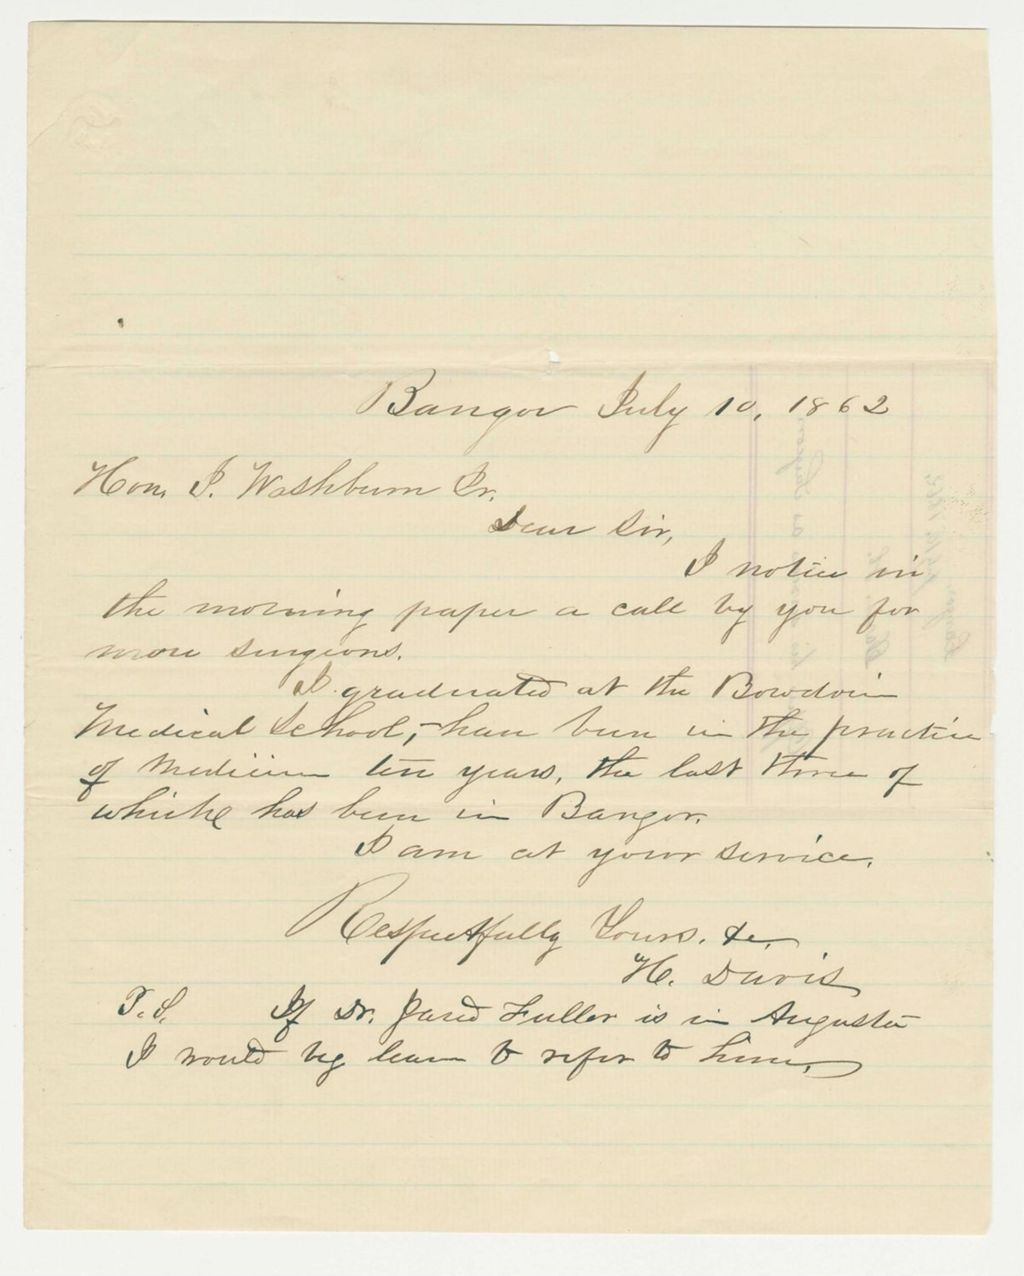 Bangor July 10, 1862
Hon. I. Washburn Jr.
Dear Sir,
I notice in
the morning paper a call by you for
more surgeons.
I graduated at the Bowdoin
Medical School,- have been in the practice
of Medicine ten years, the last three of
which has been in Bangor.
I am at your service.
Respectfully Yours. &c.
H. Davis
P.S. If Dr. Jared Fuller is in Augusta
I would beg leave to refer to him.